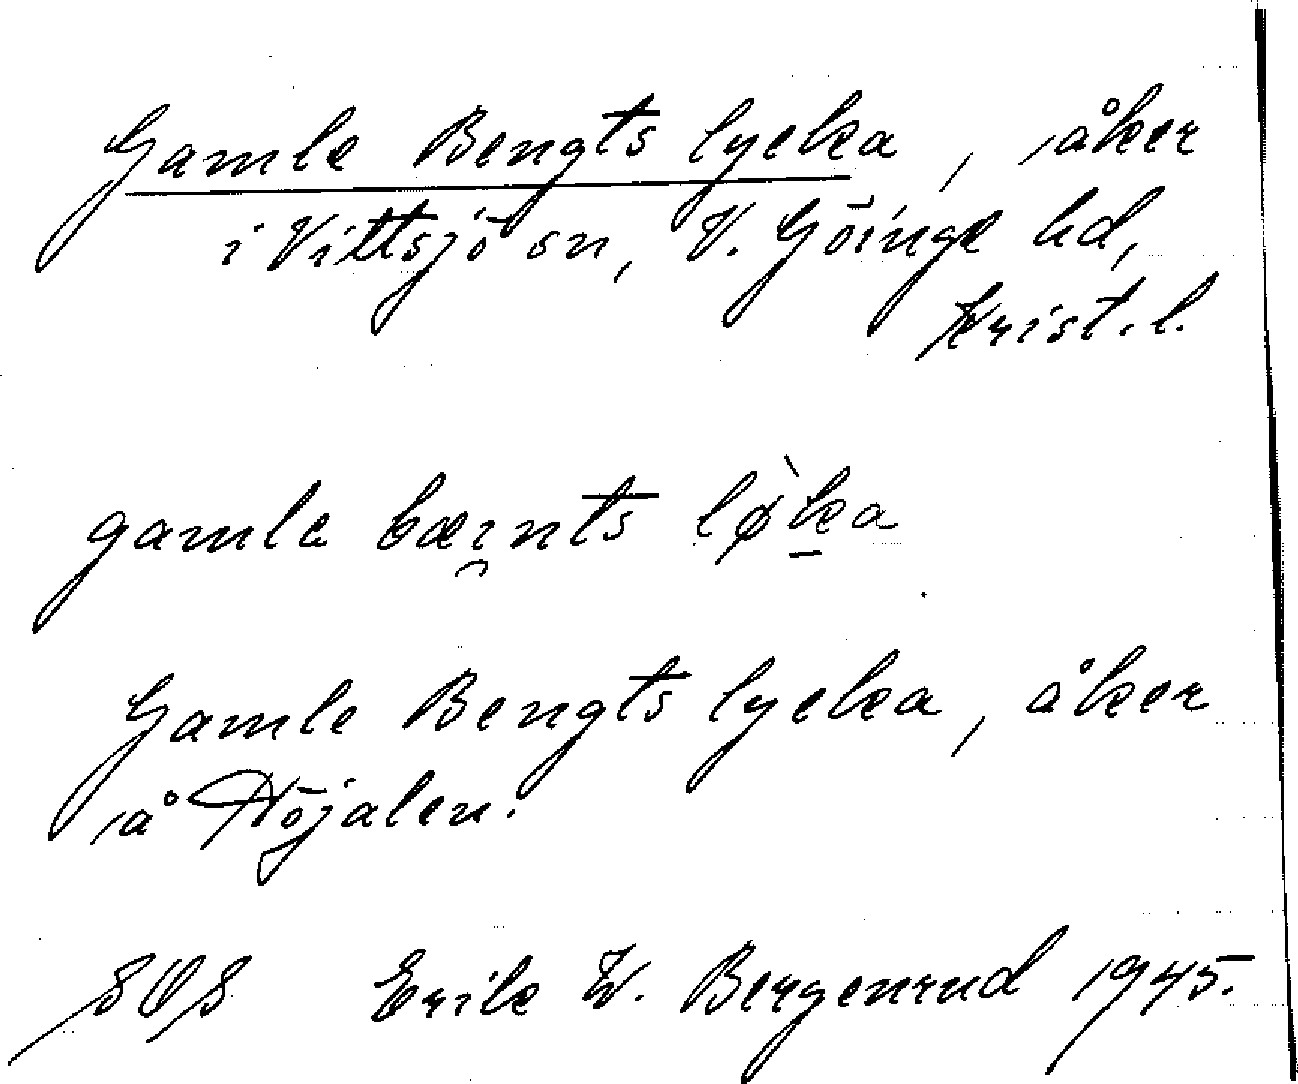 Gamle Bengts lycka, åker
i Vittsjö sn, V. Göinge hd,
Krist. l.
gamle bæi̯nts lø̀k̠a
Gamle Bengts lycka, åker
å Höjalen.
SOS Erik W. Bergenrud 1945.